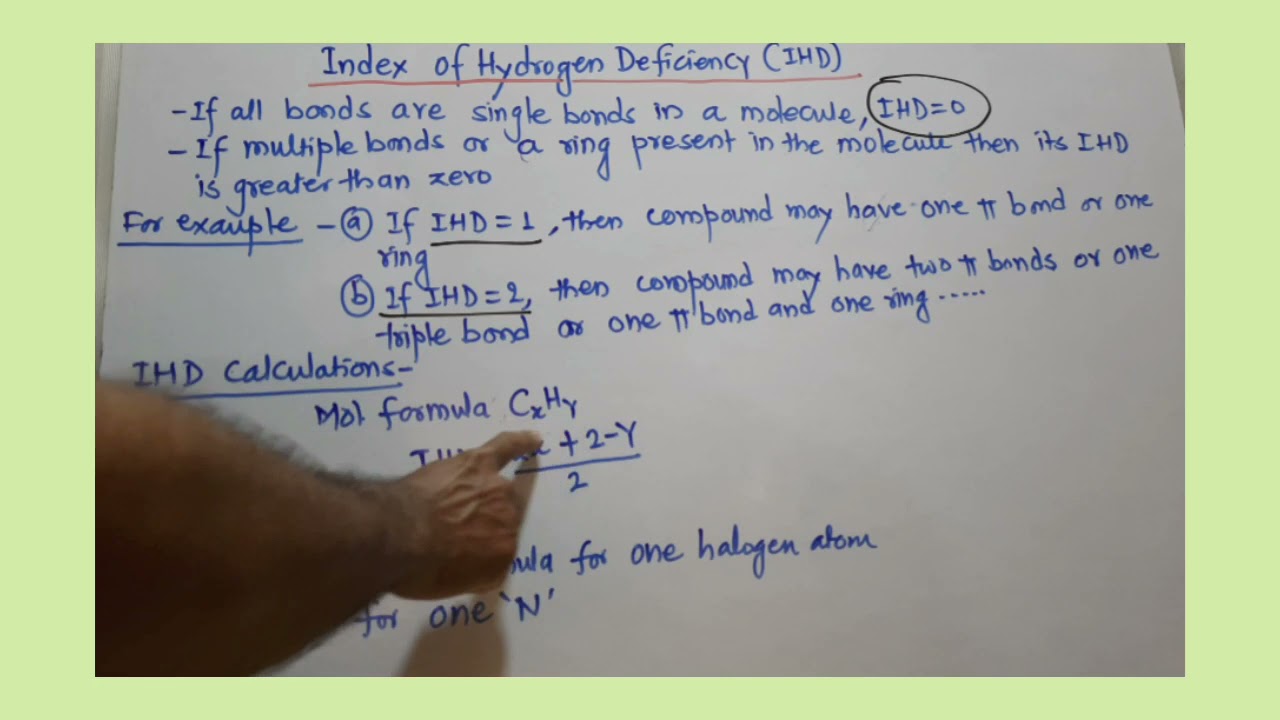 Index of Hydrogen Deficiency (IHD)
-If all bonds are single bonds in a molecule, IHD=0
- If multiple bonds or a ring present in the molecule then its IHD
is greater than zero
For example - (a) If IHD = 1, then compound may have one π bond or one
ring
(b) If IHD = 2, then compound may have two π bonds or one
triple bond or one π bond and one ring .....
IHD Calculations-
Mol formula CxHy
x + 2-Y
2
for one halogen atom
for one 'N'